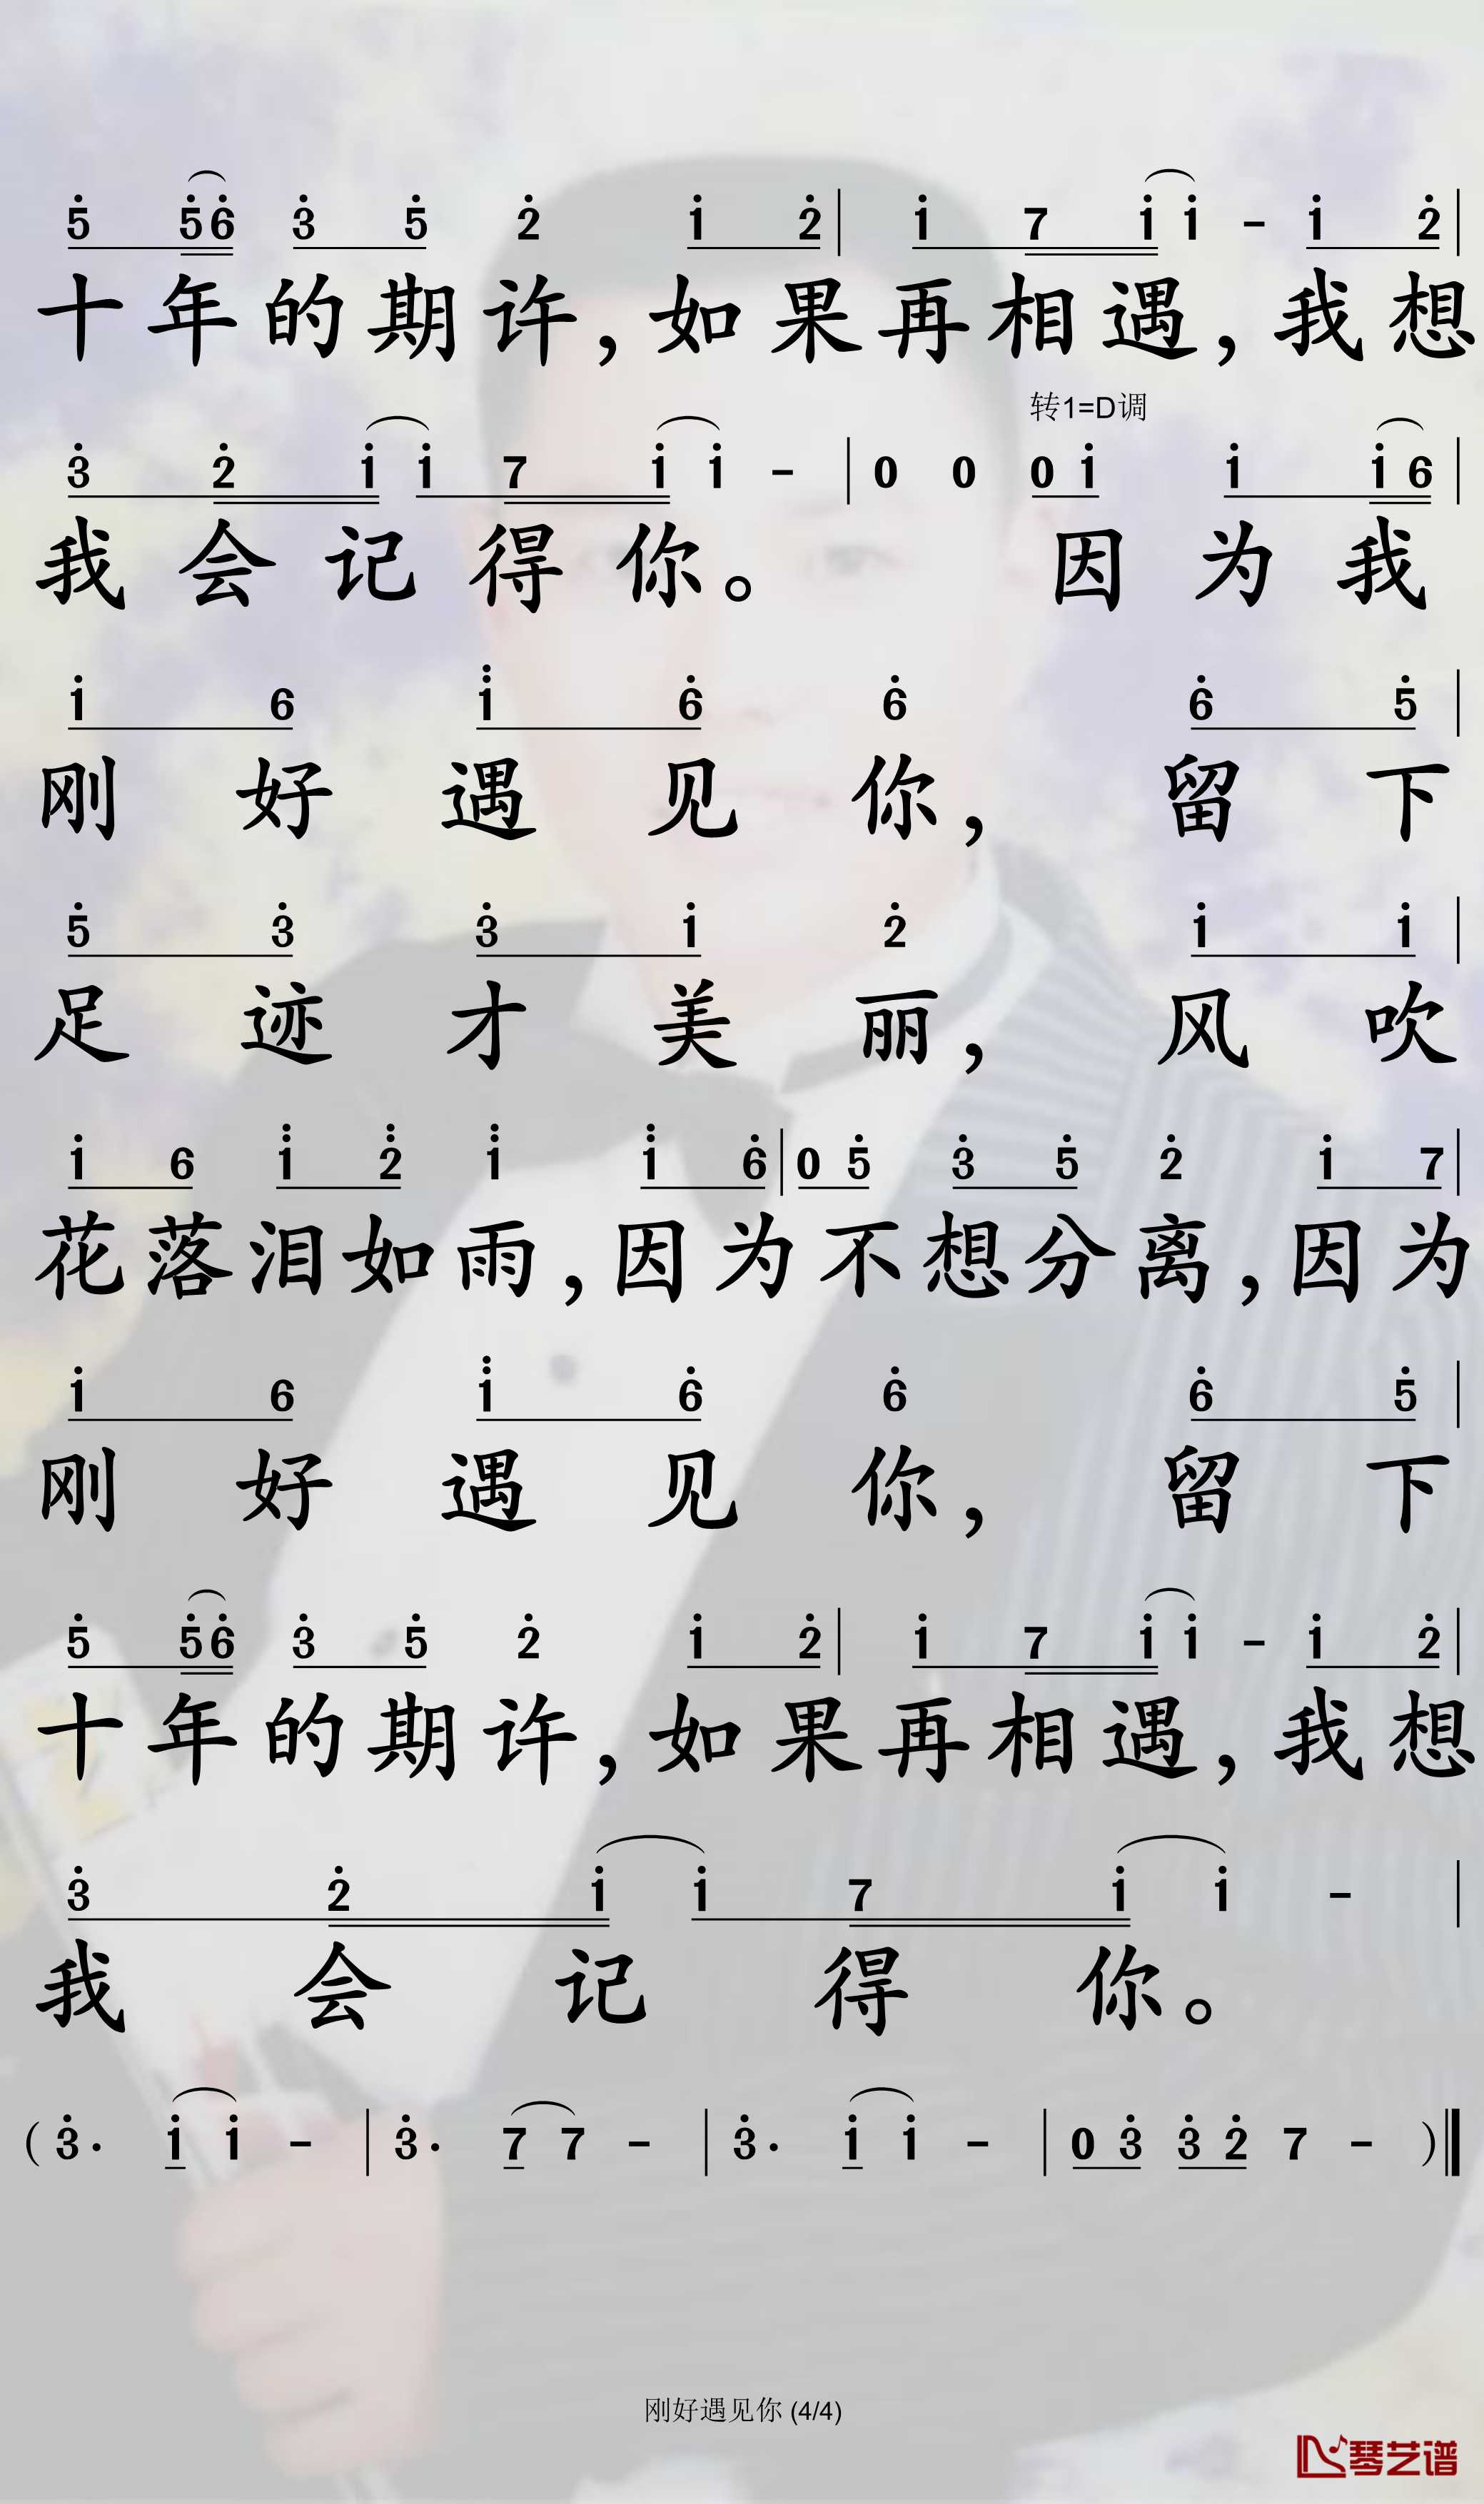 5 5 6 3 5 2 1 2 | 1 7 1 1 - 1 2 |
十年的期许，如果再相遇，我想
转1=D调
3 2 1 1 7 1 1 - | 0 0 0 1 1 1 6 |
我会记得你。 因为我
1 6 1 6 6 6 5 |
刚好遇见你， 留下
5 3 3 1 2 1 1 |
足迹才美丽， 风吹
1 6 1 2 1 1 6 | 0 5 3 5 2 1 7 |
花落泪如雨，因为不想分离，因为
1 6 1 6 6 6 5 |
刚好遇见你， 留下
5 5 6 3 5 2 1 2 | 1 7 1 1 - 1 2 |
十年的期许，如果再相遇，我想
3 2 1 1 7 1 1 - |
我会记得你。
( 3 · 1 1 - | 3 · 7 7 - | 3 · 1 1 - | 0 3 3 2 7 - ) ||
刚好遇见你 (4/4)
琴艺谱